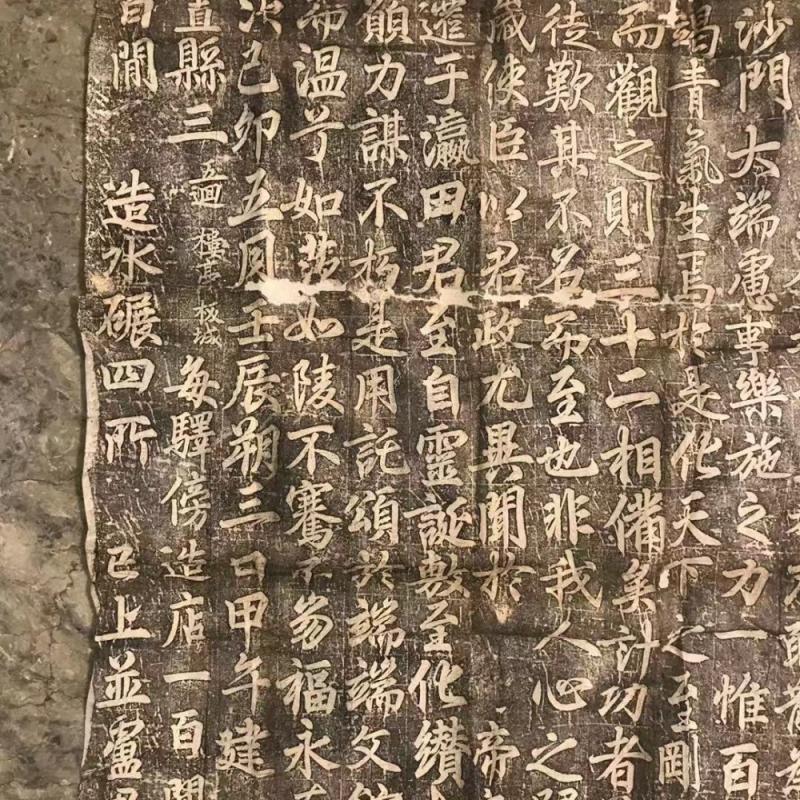 沙門大端慮事樂施之力一惟百
竭青氣生焉於是化天下之至剛
而觀之則三十二相備矣計功者
徒歎其不名而至也非我人心之
咸使臣以君政尤異聞於 帝
遷于瀛田君至自靈誕敷至化纘
願力謀不朽是用託頌於端端文
而温兮如莎如陵不騫不福永
次己卯五月壬辰朔三日甲午建
直縣三 五迴 樓亭 板城 每驛傍造店一百間
百間 造水碾四所 已上並盧